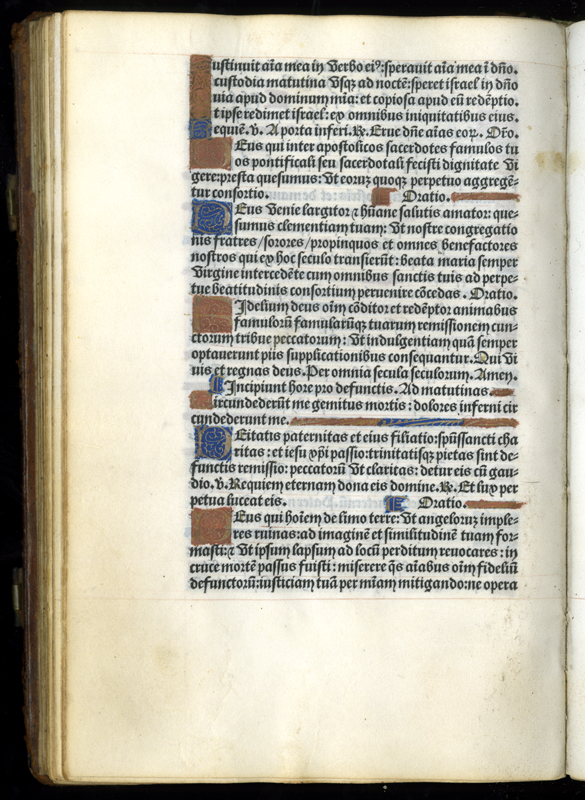 ustinuit aīa mea in Verbo ei⁹: sperauit aīa mea ī dño.
custodia matutina Vsq̄ ad noctē: speret israel in dño
uia apud dominum mīa: et copiosa apud eū redēptio.
t ipse redimet israel: ex omnibus iniquitatibus eius.
Requiē. ꝟ. A porta inferi. ℟. Erue dñe aīas eoꝝ. Oro.
Eus qui inter apostolicos sacerdotes famulos tu
os pontificali seu sacerdotali fecisti dignitate Vi
gere: presta quesumus: Vt eoruꝫ quoqꝫ perpetuo aggregē-
tur consortio. Oratio.
DEus Venie largitor ⁊ hūane salutis amator: que-
sumus clementiam tuam: Vt nostre congregatio
nis fratres/sorores/propinquos et omnes benefactores
nostros qui ex hoc seculo transierūt: beata maria semper
Virgine intercedēte cum omnibus sanctis tuis ad perpe-
tue beatitudinis consortium peruenire cōcedas. Oratio.
Idelium deus oīm cōditor et redēptor animabus
famuloꝝ famularūqꝫ tuarum remissionem cun-
ctorum tribue peccatorum: Vt indulgentiam quā semper
optauerunt piis supplicationibus consequantur. Qui Vi
uis et regnas deus. Per omnia secula seculorum. Amen.
Incipiunt hore pro defunctis. Ad matutinas.
ircundederūt me gemitus mortis: dolores inferni cir
cundederunt me.
Eitatis paternitas et eius filiatio: spūssancti cha
ritas: et iesu xp̄i passio: trinitatisqꝫ pietas sint de-
functis remissio: peccatorū Vt claritas: detur eis cū gau-
dio. ꝟ. Requiem eternam dona eis domine. ℟. Et lux per
petua luceat eis. Oratio.
Eus qui hoīem de limo terre: Vt angeloruꝫ imple-
res ruinas: ad imaginē et similitudinē tuam for-
masti: ⁊ Vt ipsum lapsum ad locū perditum reuocares: in
cruce mortē passus fuisti: miserere q̄s aīabus oīm fideliū
defunctorū: iusticiam tuā per mīam mitigando: ne opera